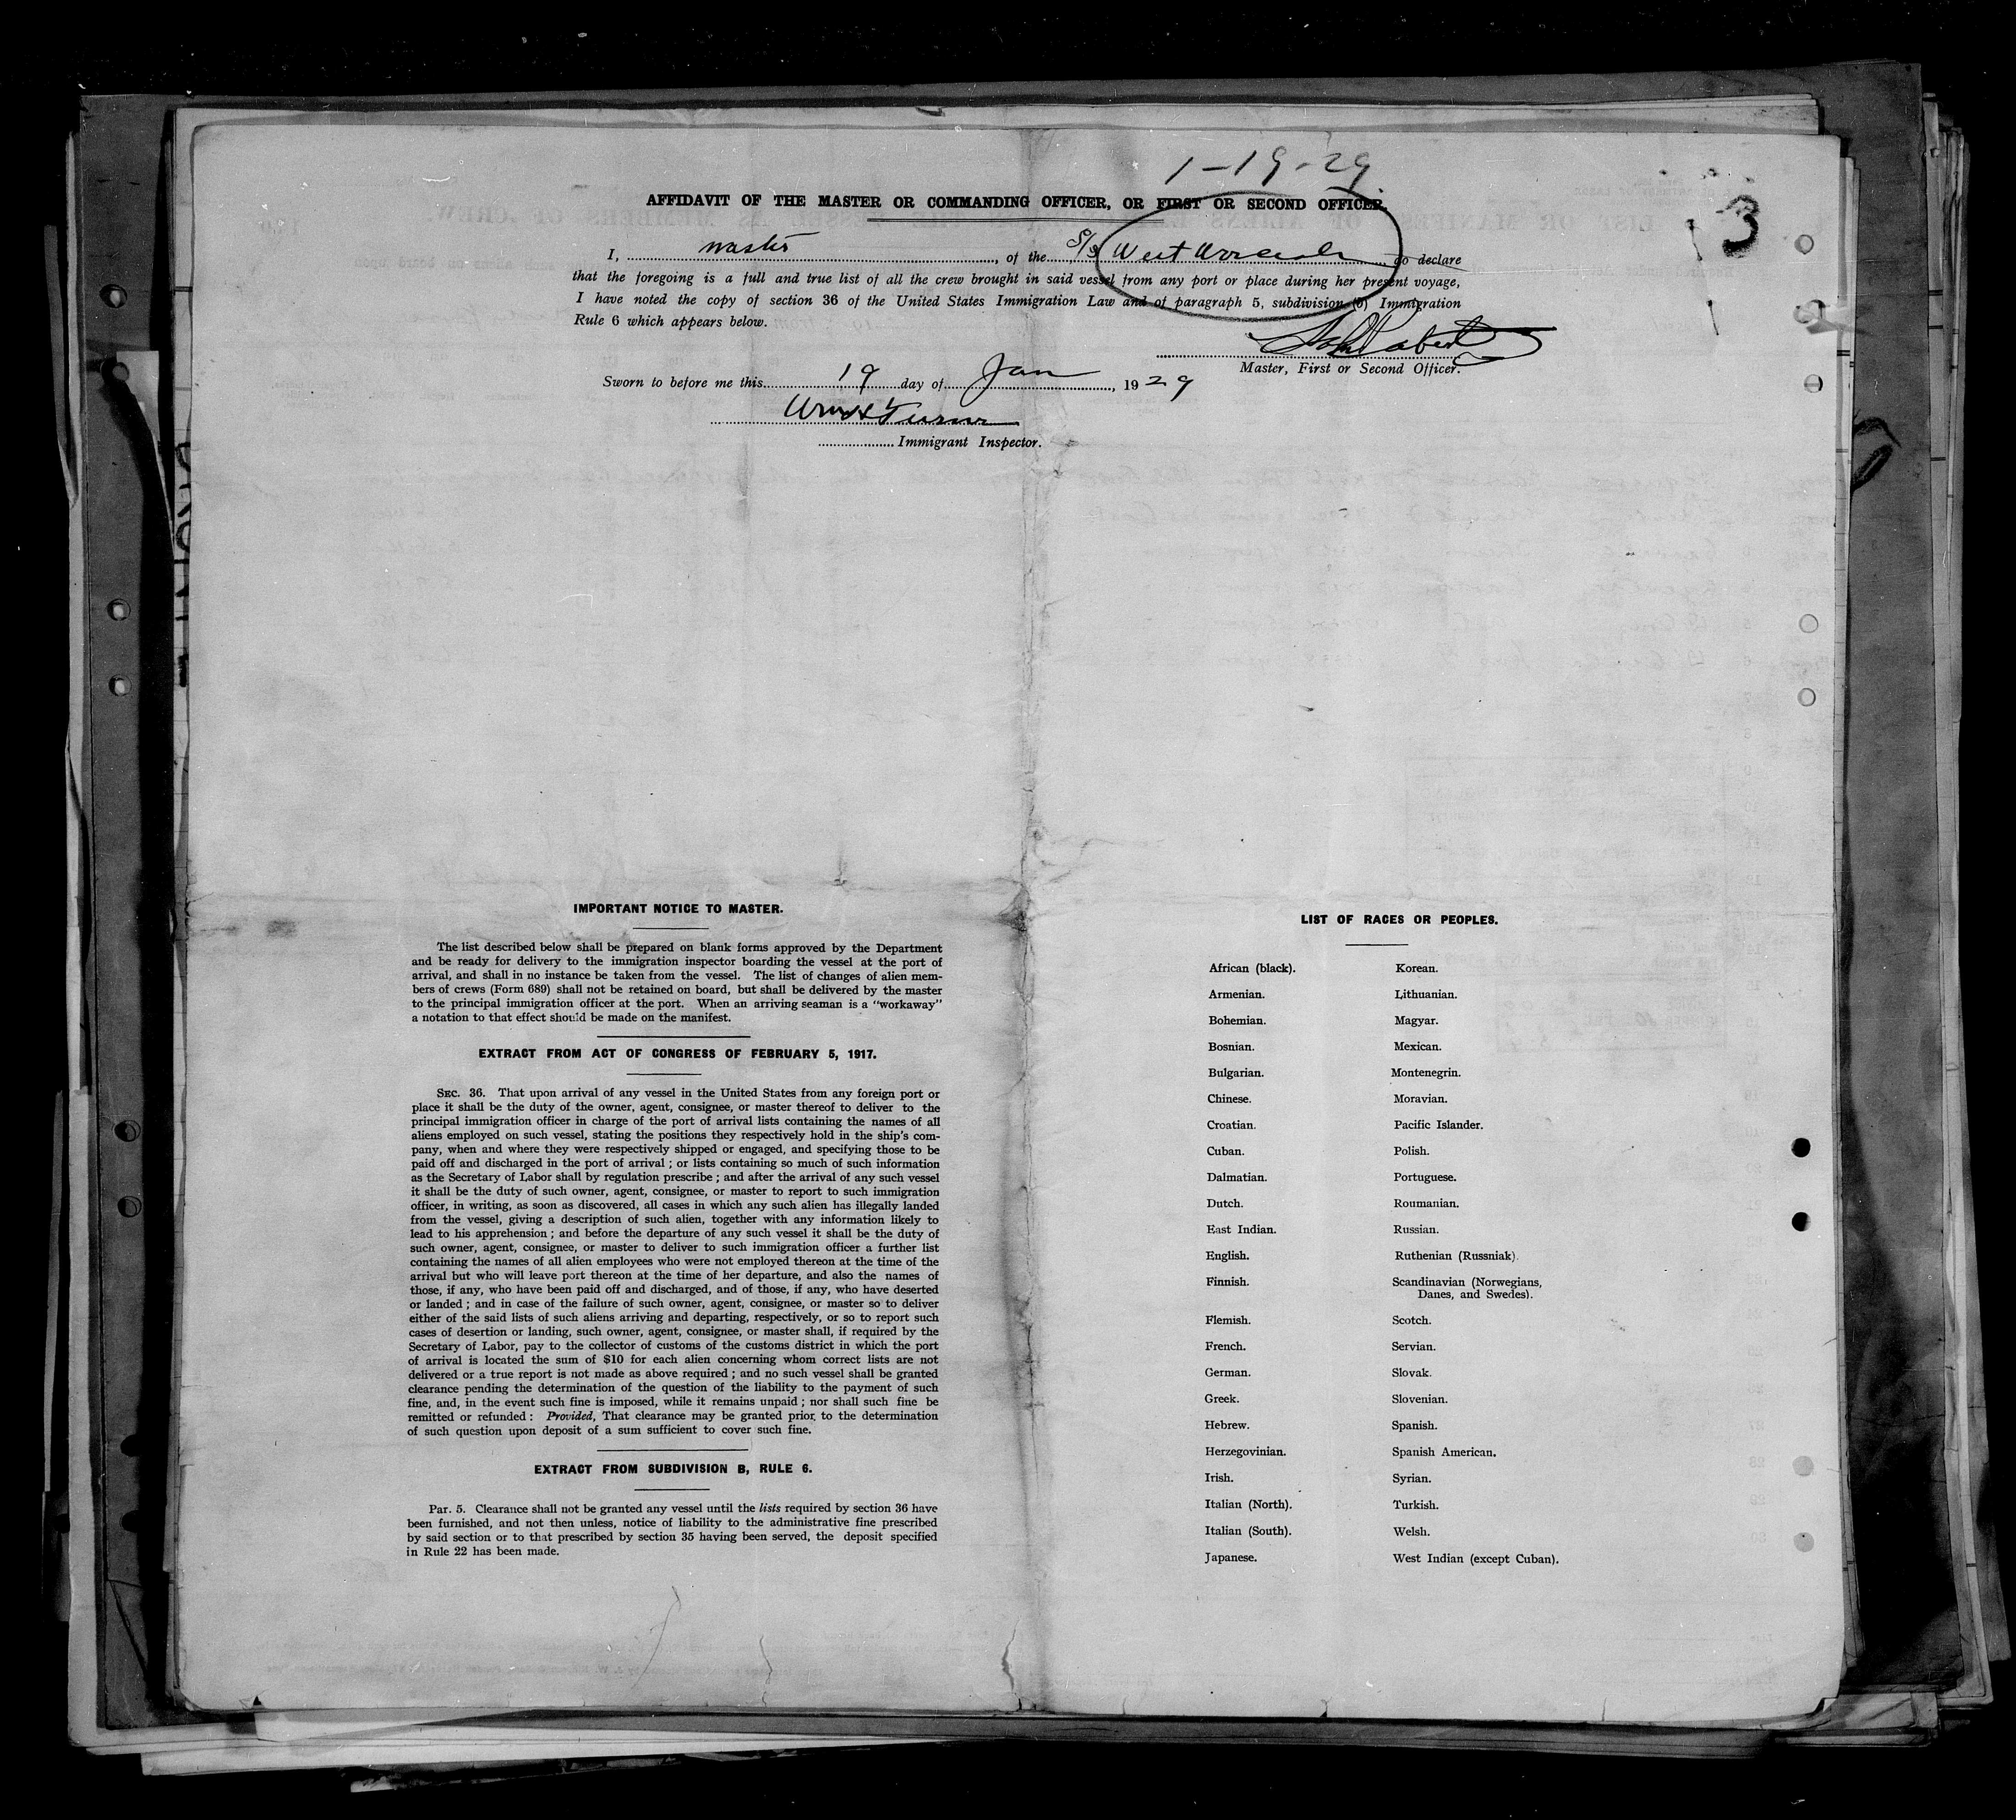 1-19-29
AFFIDAVIT OF THE MASTER OR COMMANDING OFFICER, OR FIRST OR SECOND OFFICER.
3
I, master, of the S/S West do declare
that the foregoing is a full and true list of all the crew brought in said vessel from any port or place during her present voyage,
I have noted the copy of section 36 of the United States Immigration Law and of paragraph 5, subdivision (b) Immigration
Rule 6 which appears below.
Master, First or Second Officer.
Sworn to before me this 19 day of Jan, 1929
Turner
Immigrant Inspector.
IMPORTANT NOTICE TO MASTER.
The list described below shall be prepared on blank forms approved by the Department
and be ready for delivery to the immigration inspector boarding the vessel at the port of
arrival, and shall in no instance be taken from the vessel. The list of changes of alien mem-
bers of crews (Form 689) shall not be retained on board, but shall be delivered by the master
to the principal immigration officer at the port. When an arriving seaman is a "workaway"
a notation to that effect should be made on the manifest.
EXTRACT FROM ACT OF CONGRESS OF FEBRUARY 5, 1917.
SEC. 36. That upon arrival of any vessel in the United States from any foreign port or
place it shall be the duty of the owner, agent, consignee, or master thereof to deliver to the
principal immigration officer in charge of the port of arrival lists containing the names of all
aliens employed on such vessel, stating the positions they respectively hold in the ship's com-
pany, when and where they were respectively shipped or engaged, and specifying those to be
paid off and discharged in the port of arrival; or lists containing so much of such information
as the Secretary of Labor shall by regulation prescribe; and after the arrival of any such vessel
it shall be the duty of such owner, agent, consignee, or master to report to such immigration
officer, in writing, as soon as discovered, all cases in which any such alien has illegally landed
from the vessel, giving a description of such alien, together with any information likely to
lead to his apprehension; and before the departure of any such vessel it shall be the duty of
such owner, agent, consignee, or master to deliver to such immigration officer a further list
containing the names of all alien employees who were not employed thereon at the time of the
arrival but who will leave port thereon at the time of her departure, and also the names of
those, if any, who have been paid off and discharged, and of those, if any, who have deserted
or landed; and in case of the failure of such owner, agent, consignee, or master so to deliver
either of the said lists of such aliens arriving and departing, respectively, or so to report such
cases of desertion or landing, such owner, agent, consignee, or master shall, if required by the
Secretary of Labor, pay to the collector of customs of the customs district in which the port
of arrival is located the sum of $10 for each alien concerning whom correct lists are not
delivered or a true report is not made as above required; and no such vessel shall be granted
clearance pending the determination of the question of the liability to the payment of such
fine, and, in the event such fine is imposed, while it remains unpaid; nor shall such fine be
remitted or refunded: Provided, That clearance may be granted prior to the determination
of such question upon deposit of a sum sufficient to cover such fine.
EXTRACT FROM SUBDIVISION B, RULE 6.
Par. 5. Clearance shall not be granted any vessel until the lists required by section 36 have
been furnished, and not then unless, notice of liability to the administrative fine prescribed
by said section or to that prescribed by section 35 having been served, the deposit specified
in Rule 22 has been made.
LIST OF RACES OR PEOPLES.
African (black). Korean.
Armenian. Lithuanian.
Bohemian. Magyar.
Bosnian. Mexican.
Bulgarian. Montenegrin.
Chinese. Moravian.
Croatian. Pacific Islander.
Cuban. Polish.
Dalmatian. Portuguese.
Dutch. Roumanian.
East Indian. Russian.
English. Ruthenian (Russniak).
Finnish. Scandinavian (Norwegians,
Danes, and Swedes).
Flemish. Scotch.
French. Servian.
German. Slovak.
Greek. Slovenian.
Hebrew. Spanish.
Herzegovinian. Spanish American.
Irish. Syrian.
Italian (North). Turkish.
Italian (South). Welsh.
Japanese. West Indian (except Cuban).